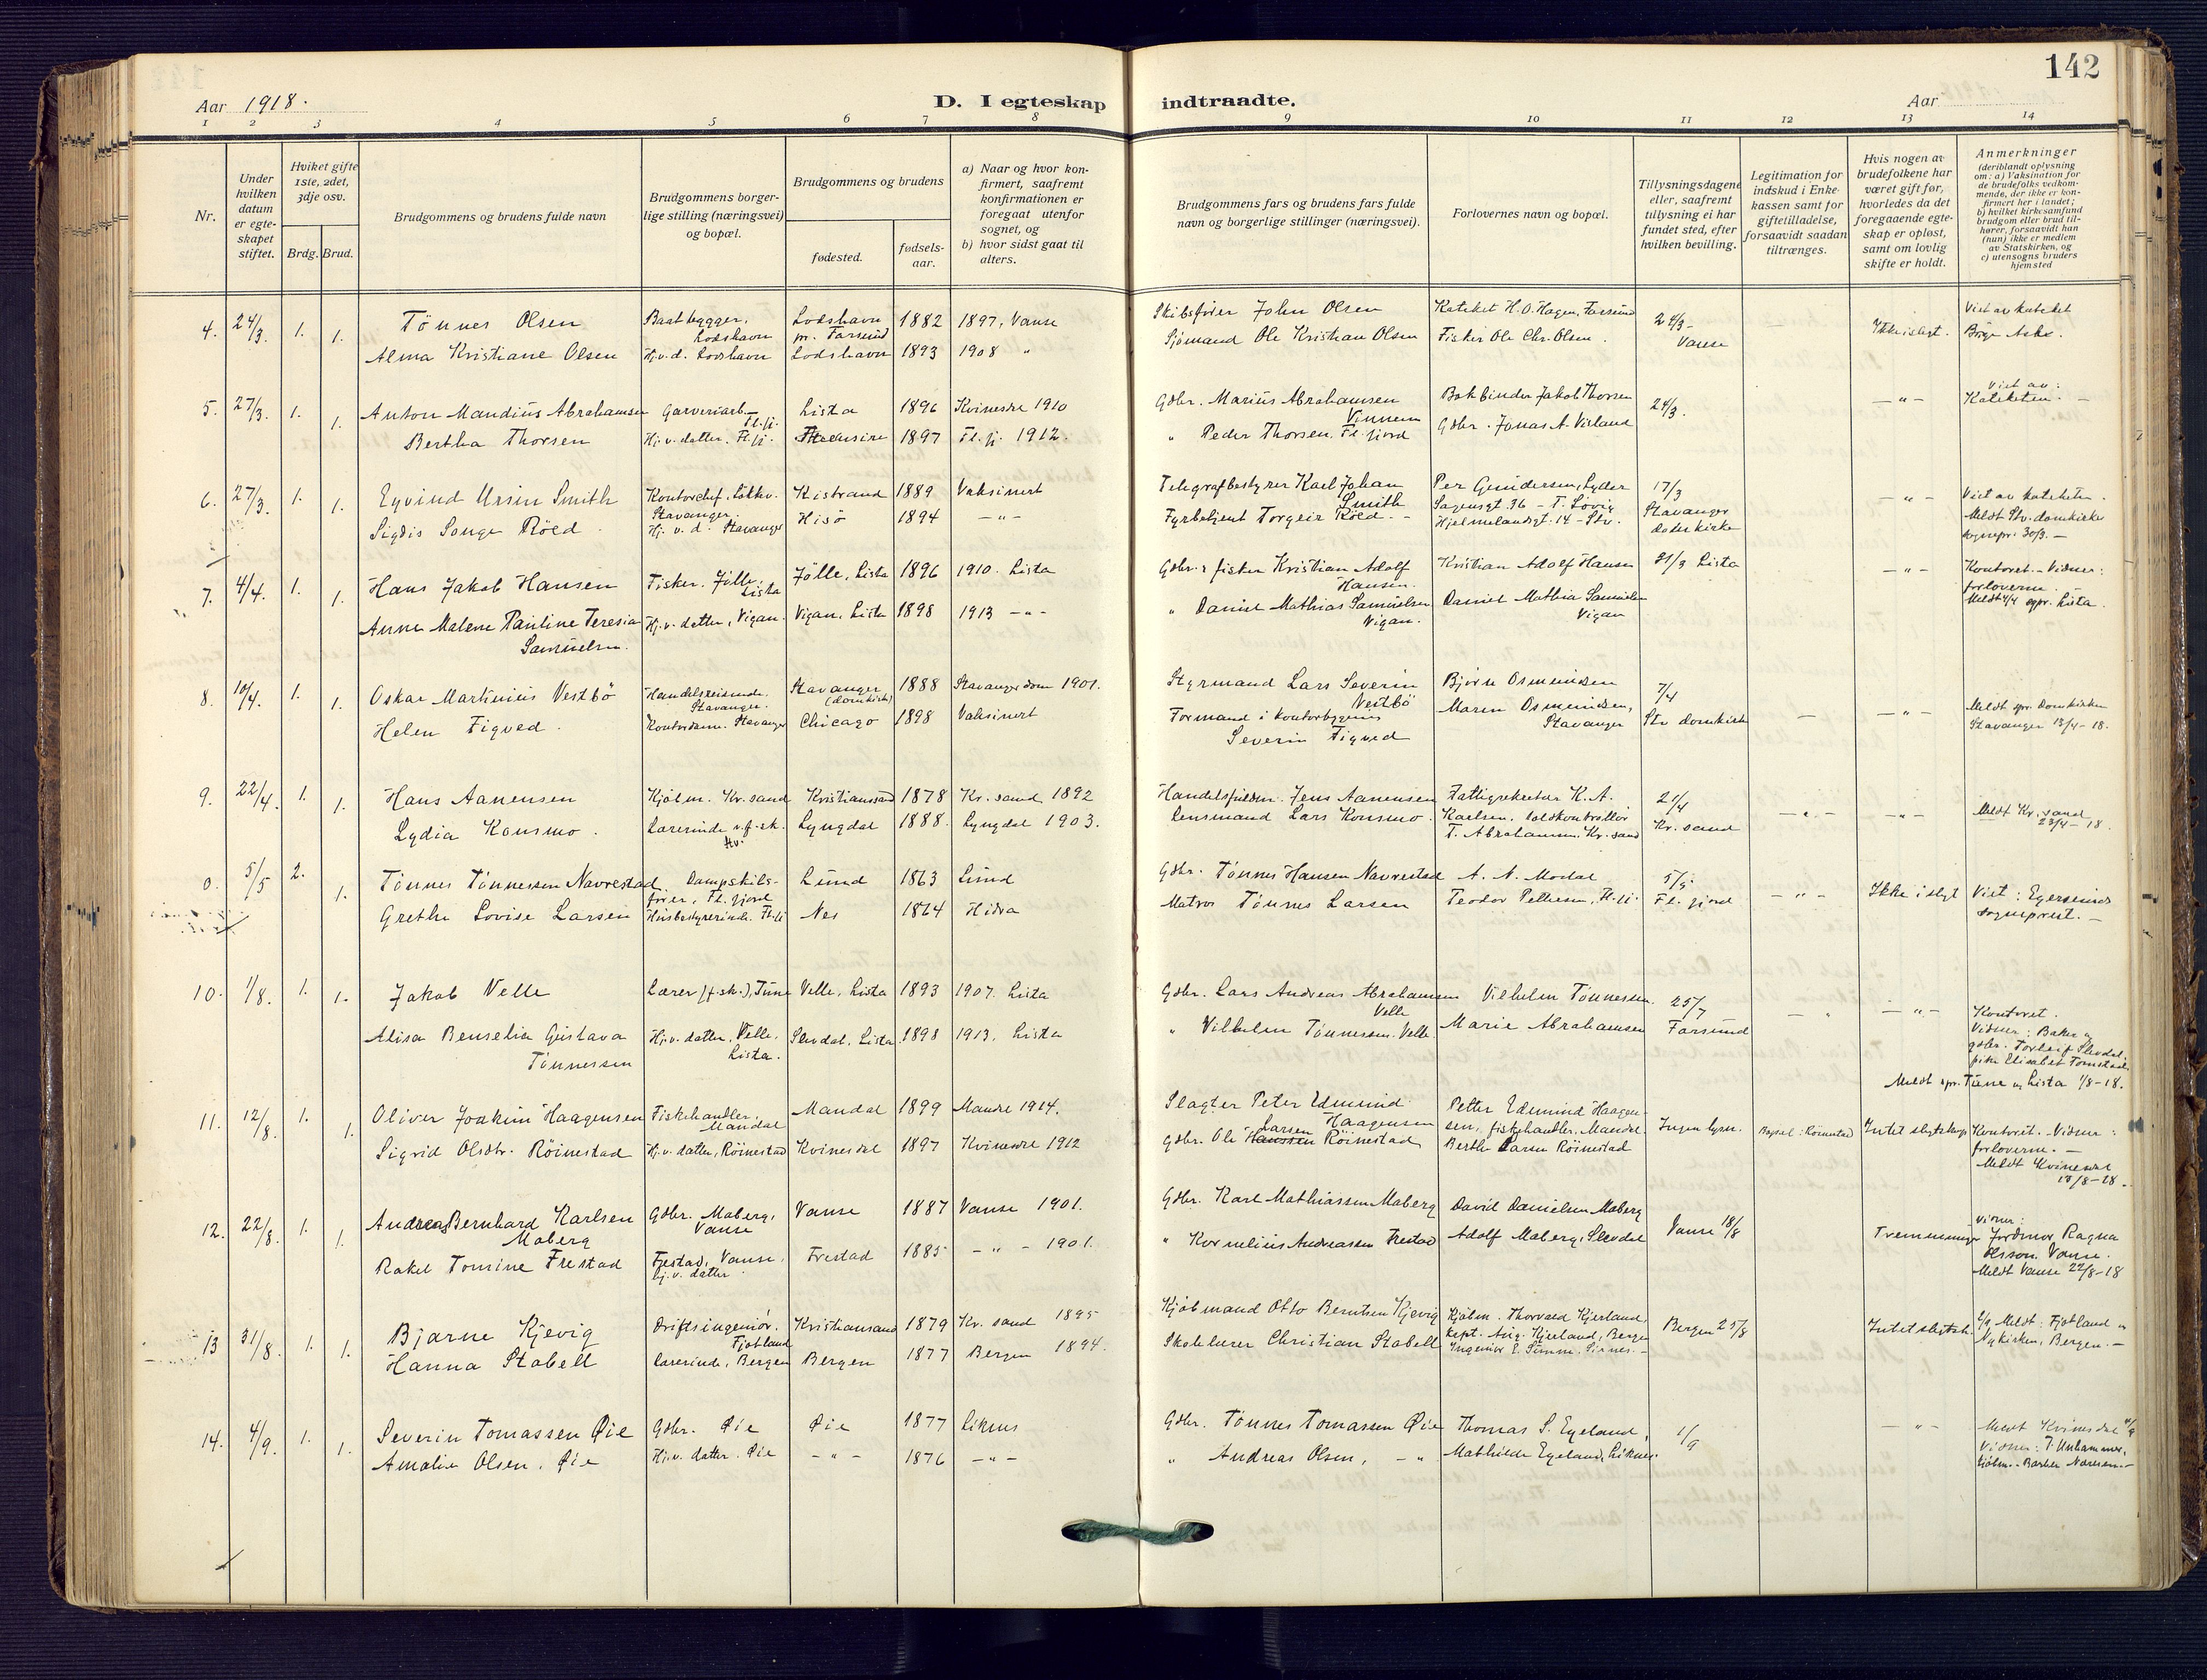 142
Aar 1918.
D. I egteskap indtraadte.
Aar
1 2 3 4 5 6 7 8 9 10 11 12 13 14
Nr.
Under hvilken datum er egte-skapet stiftet.
Hviket gifte 1ste, 2det, 3dje osv.
Brdg. Brud.
Brudgommens og brudens fulde navn
Brudgommens borger-lige stilling (næringsvei) og bopæl.
Brudgommens og brudens
fødested.
fødsels-aar.
a) Naar og hvor kon-firmert, saafremt konfirmationen er foregaat utenfor sognet, og
b) hvor sidst gaat til alters.
Brudgommens fars og brudens fars fulde navn og borgerlige stillinger (næringsvei).
Forlovernes navn og bopæl.
Tillysningsdagene eller, saafremt tillysning ei har fundet sted, efter hvilken bevilling.
Legitimation for indskud i Enke-kassen samt for giftetilladelse, forsaavidt saadan tiltrænges.
Hvis nogen av brudefolkene har været gift før, hvorledes da det foregaaende egte-skap er opløst, samt om lovlig skifte er holdt.
Anmerkninger (deriblandt oplysning om: a) Vaksination for de brudefolks vedkom-mende, der ikke er kon-firmert her i landet; b) hvilket kirkesamfund brudgom eller brud til-hører, forsaavidt han (hun) ikke er medlem av Statskirken, og c) utensogns bruders hjemsted
4. 24/3. 1. 1. Tönnes Olsen Baatbygger, Lodshavn Lodshavn pr. Farsund 1882 1897, Vanse Skibsfører John Olsen Kateket H.O. Hagen, Farsund 24/3 - Vanse Ikke i slegt. Viet av kateket
Alma Kristiane Olsen Hj.v.d. Lodshavn Lodshavn 1893 1908 " Sjømand Ole Kristian Olsen Fisker Ole Chr. Olsen. Børge Aske.
5. 27/3. 1. 1. Anton Mandius Abrahamsen Garveriarb. Fl.fj. Lista 1896 Kvinesdal 1910 Gdbr. Marius Abrahamsen Vinnem Bokbinder Jakob Thorsen 24/3. - " - Viet av: Kateketen. -
Bertha Thorsen Hj.v. datter. Fl.fj. 1897 Fl.fj. 1912. " Peder Thorsen. Fl.fjord Gdbr. Jonas A. Virland
6. 27/3. 1. 1. Eyvind Ursin Smith Kontorchef. Stavanger. Kistrand 1889 Vaksinert Telegrafbestyrer Karl Johan Smith 17/3 Stavanger domkirke - " - Viet av kateketen.
Sigdis Songe Röed Hj. v. d. Stavanger Hisö 1894 - " - Fyrbetjent Torgeir Röed. - Hjelmelandsgt. 14 - Stv. Meldt Stv. domkirke sognepr. 30/3. -
7. 4/4. 1. 1. Hans Jakob Hansen Fisker. Jölle, Lista Jölle, Lista 1896 1910. Lista Gdbr. & fisker Kristian Adolf Hansen. Kristian Adolf Hansen 31/3 Lista - " - Kontoret. - Vidner: forloverne. -
Anne Malene Pauline Teresia Samuelsen. Hj.v. datter, Vigan. Vigan, Lista 1898 1913 - " - " Daniel Mathias Samuelsen Vigan. Daniel Mathia Samuelsen Vigan Meldt 4/4 spr. Lista.
8. 10/4. 1. 1. Oskar Martinius Vestbö Handelsreisende. Stavanger. Stavanger (domkirke) 1888 Stavanger dom 1901. Styrmand Lars Severin Vestbö Bjørn Osmundsen 7/4 Stv domkirke - - " - Meldt spr. Domkirken
Helen Figved. Kontordame. Stavanger Chicago 1898 Vaksinert Formand i kontorbygnin Severin Figved Maren Osmundsen, Stavanger Stavanger 13/4 - 18.
9. 22/4. 1. 1. Hans Aanensen Kjøbm. Kr.sand Kristianssand 1878 Kr. sand 1892 Handelsfuldm. Jens Aanensen Fattigsekretær K. A. 21/4 Kr. sand - " - - " - Meldt Kr. sand 23/4 - 18.
Lydia Konsmo. Lærerinde v.f.sk. Lyngdal 1888. Lyngdal 1903. Lensmand Lars Konsmo. Karlsen, Toldkontrollør T. Abrahamsen. Kr. sand
0. 5/5 2. 1. Tönnes Tönnessen Navrestad Dampskibs-fører, Fl. fjord Lund 1863 Lund Gdbr. Tönnes Hansen Navrestad A. N. Modal 5/5. Fl. fjord - " - Ikke i slegt Viet: Egersunds
Grethe Lovise Larsen Husbestyrerinde. Fl.fj Nes 1864 Hidra Matros Tönnes Larsen Teodor Pettersen, Fl.fj. sogneprest. -
10. 1/8. 1. 1. Jakob Velle Lærer (f.sk.), Tune Velle, Lista 1893 1907. Lista Gdbr. Lars Andreas Abrahamsen Velle Vilhelm Tönnessen. 25/7 Farsund - " - " - Kontoret.
Alisa Benselia Gustava Tönnessen Hj.v. datter, Velle. Lista. Slevdal, Lista 1898 1913. Lista " Vilhelm Tönnessen. Velle Marie Abrahamsen Vidner: Baker og gdbr. Torleif Slevdal. pike Elisabet Tomstad.
Meldt spr. Tune og Lista 1/8 - 18.
11. 12/8. 1. 1. Oliver Joakim Haagensen Fiskehandler, Mandal Mandal 1899 Mandal 1914. Slagter Peter Edmund Haagensen Petter Edmund Haagen- Ingen lysn. Bopæl: Röinestad Intet slegtskap Kontoret. Vidner:
Sigrid Olsdtr. Röinestad Hj.v. datter, Röinestad Kvinesdal 1897 Kvinesdal 1912 Gdbr. Ole Larsen Röinestad sen, fiskehandler. Mandal Berthe Larsen Röinestad forloverne. -
Meldt Kvinesdal 13/8 - 18.
12. 22/8. 1. 1. Andreas Bernhard Karlsen Maberg Gdbr. Maberg, Vanse Vanse 1887 Vanse 1901. Gdbr. Karl Mathiassen Maberg David Danielsen Maberg Vanse 18/8 Tremenninger Vidner: Jordmor Ragna
Rakel Tomine Frestad Frestad, Vanse. hj.v. datter Frestad 1885 - " - 1901. " Kornelius Andreassen Frestad Adolf Maberg, Slevdal Olsson. Vanse.
Meldt Vanse 22/8 - 18
13 31/8. 1. 1. Bjarne Kjevig Driftsingeniør. Fjotland Kristiansand 1879 Kr. sand 1895 Kjøbmand Otto Berntsen Kjevig Kjøbm. Thorvald Kjerland, Bergen 25/8 Intet slegtsk. Meldt: Fjotland og
Hanna Stabell Lærerinde, Bergen Bergen 1877 Bergen 1894. Skolelærer Christian Stabell kapt. Aug. Kjerland, Bergen Nykirken, Bergen. -
14. 4/9. 1. 1. Severin Tomassen Øie Gdbr. Øie Øie 1877 Liknes Gdbr. Tönnes Tomassen Øie Thomas S. Egeland, 1/9 - " - Meldt Kvinesdal 4/9
Amalie Olsen. Øie Hj.v. datter. Øie - " - 1876 - " - " Andreas Olsen, - " Mathilde Egeland, Liknes. Vidner: T. Unhammer,